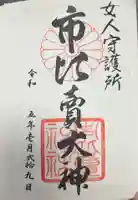 女人守護所
市比賣大神
令和
五年壱月弐拾九日